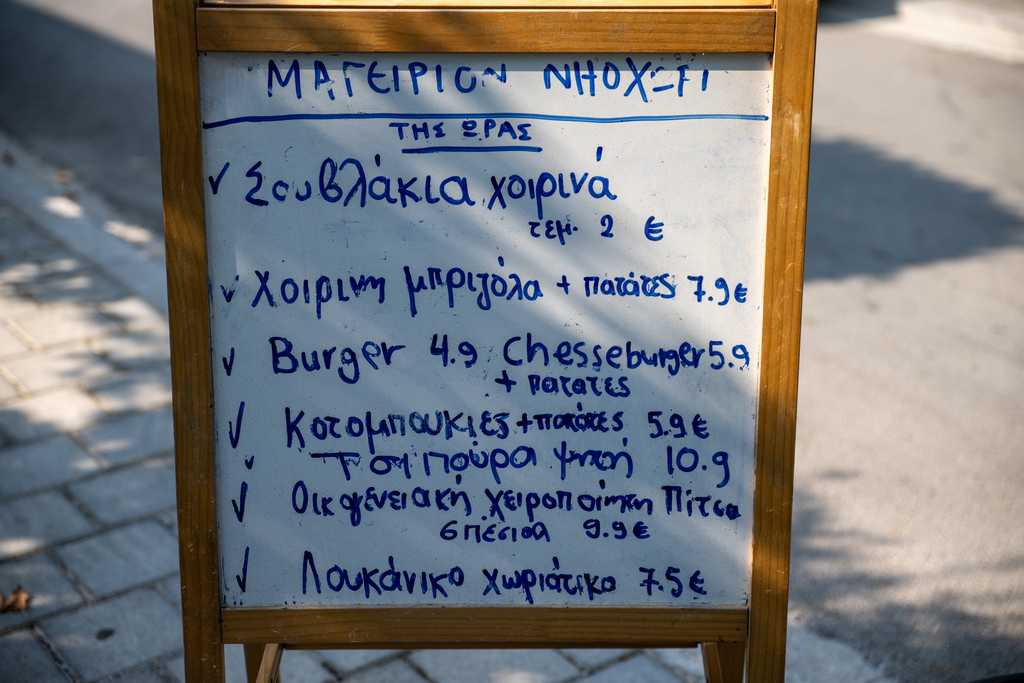 ΜΑΓΕΙΡΙΟΝ ΝΗΟΧΩΡΙ
ΤΗΣ ΩΡΑΣ
✓ Σουβλάκια χοιρινά
τεμ. 2 €
✓ Χοιρινη μπριζόλα + πατάτες 7.9€
✓ Burger 4.9 Chesseburger 5.9
+ πατατες
✓ Κοτομπουκιες + πατάτες 5.9€
✓ Τσιπούρα ψητή 10.9
✓ Οικογενειακή χειροποίητη Πίτσα
σπέσιαλ 9.9€
✓ Λουκάνικο χωριάτικο 7.5€